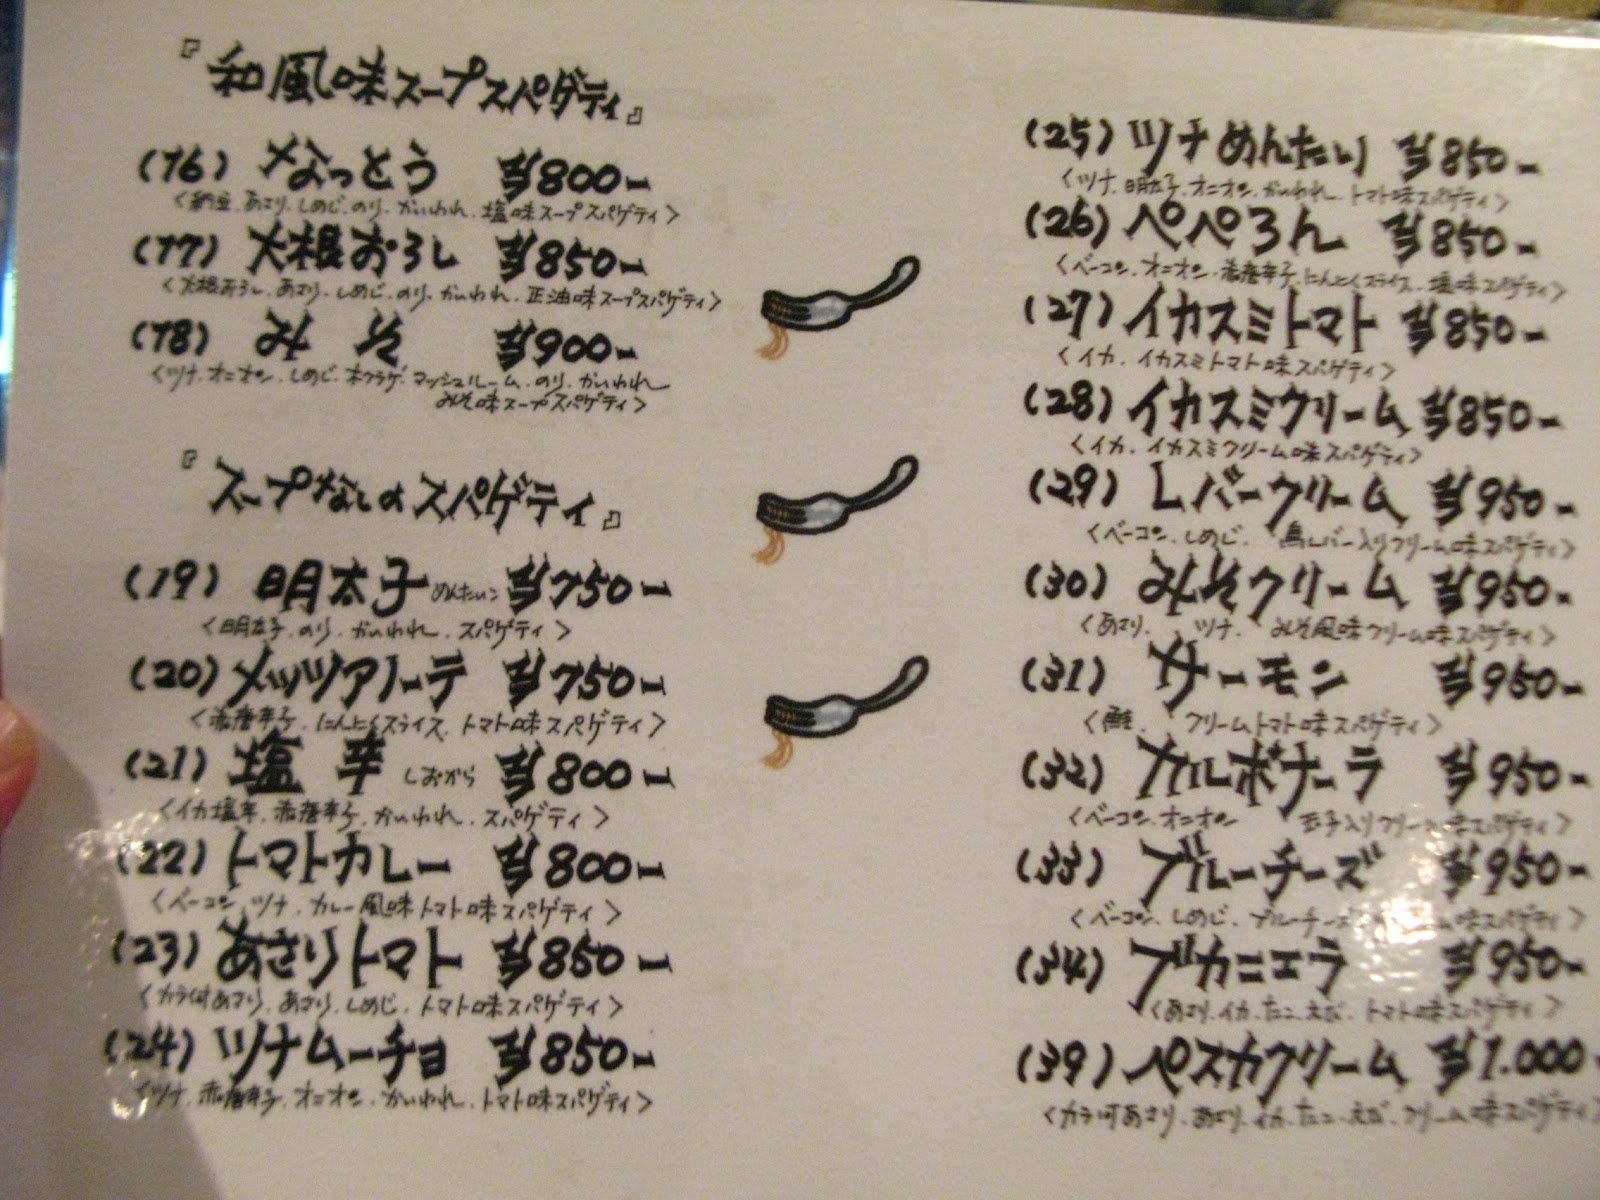 『和風味スープスパゲティ』
(16) なっとう ¥800-
<納豆.あさり.しめじ.のり.かいわれ.塩味スープスパゲティ>
(17) 大根おろし ¥850-
<大根おろし.あさり.しめじ.のり.かいわれ.正油味スープスパゲティ>
(18) みそ ¥900-
<ツナ.オニオン.しめじ.木クラゲ.マッシュルーム.のり.かいわれ
みそ味スープスパゲティ>
『スープなしのスパゲティ』
(19) 明太子 めんたいこ ¥750-
<明太子.のり.かいわれ.スパゲティ>
(20) メッツアノーテ ¥750-
<赤唐辛子.にんにくスライス.トマト味スパゲティ>
(21) 塩辛 しおから ¥800-
<イカ塩辛.赤唐辛子.かいわれ.スパゲティ>
(22) トマトカレー ¥800-
<ベーコン.ツナ.カレー風味トマト味スパゲティ>
(23) あさりトマト ¥850-
<カラ付あさり.あさり.しめじ.トマト味スパゲティ>
(24) ツナムーチョ ¥850-
<ツナ.赤唐辛子.オニオン.かいわれ.トマト味スパゲティ>
(25) ツナめんたい ¥850-
<ツナ.明太子.オニオン.かいわれ.トマト味スパゲティ>
(26) ペペろん ¥850-
<ベーコン.オニオン.赤唐辛子.にんにくスライス.塩味スパゲティ>
(27) イカスミトマト ¥850-
<イカ.イカスミトマト味スパゲティ>
(28) イカスミクリーム ¥850-
<イカ.イカスミクリーム味スパゲティ>
(29) レバークリーム ¥950-
<ベーコン.しめじ.鳥レバー入りクリーム味スパゲティ>
(30) みそクリーム ¥950-
<あさり.ツナ.みそ風味クリーム味スパゲティ>
(31) サーモン ¥950-
<鮭.クリームトマト味スパゲティ>
(32) カルボナーラ ¥950-
<ベーコン.オニオン 玉子入りクリーム味スパゲティ>
(33) ブルーチーズ ¥950-
<ベーコン.しめじ.ブルーチーズ 味スパゲティ>
(34) ブカニエラ ¥950-
<あさり.イカ.たこ.えび.トマト味スパゲティ>
(39) ペスカクリーム ¥1.000-
<カラ付あさり.あさり.イカ.たこ.えび.クリーム味スパゲティ>